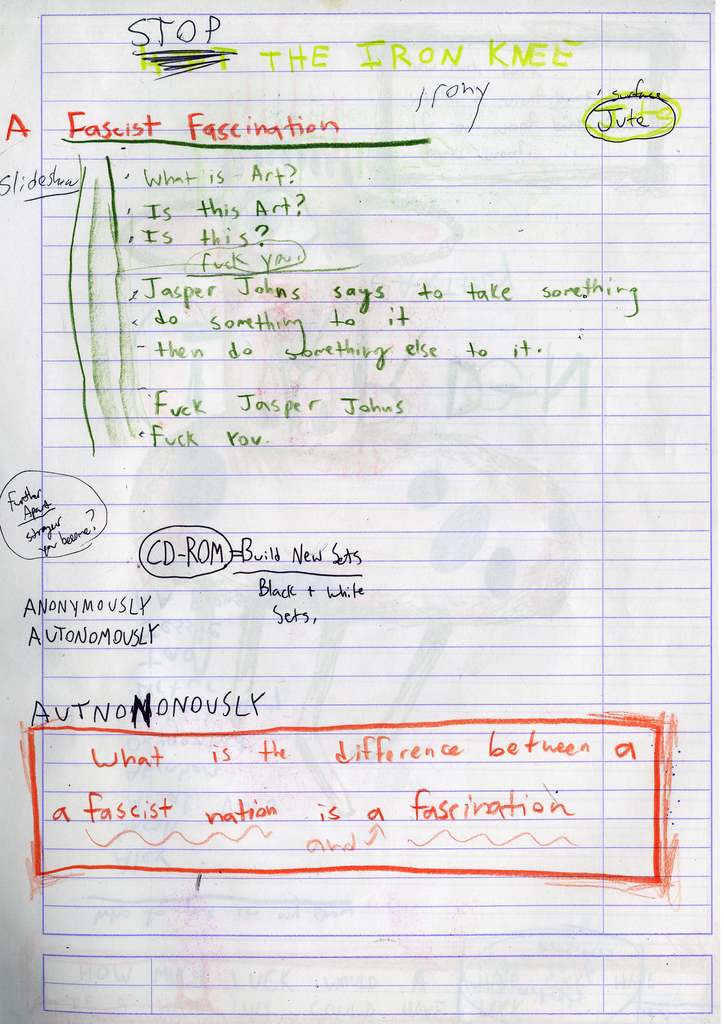 STOP
THE IRON KNEE
irony
surface
Jute
A Fascist Fascination
Slideshow
What is Art?
Is this Art?
Is this?
fuck you.
Jasper Johns says to take something
do something to it
- then do something else to it.
Fuck Jasper Johns
fuck you.
Further
Apart
stronger
you become?
CD-ROM = Build New Sets
Black + White
Sets,
ANONYMOUSLY
AUTONOMOUSLY
AUTNONONOUSLY
What is the difference between a
a fascist nation is a fascination
and